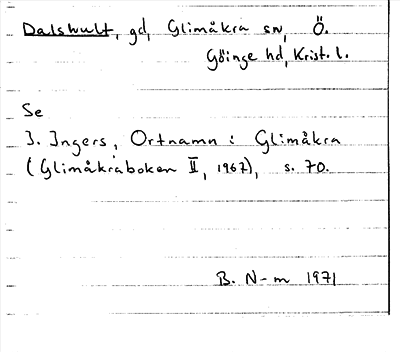 Dalshult, gd, Glimåkra sn, Ö.
Göinge hd, Krist. l.
Se
I. Ingers, Ortnamn i Glimåkra
(Glimåkraboken II, 1967), s. 70.
B. N-m 1971